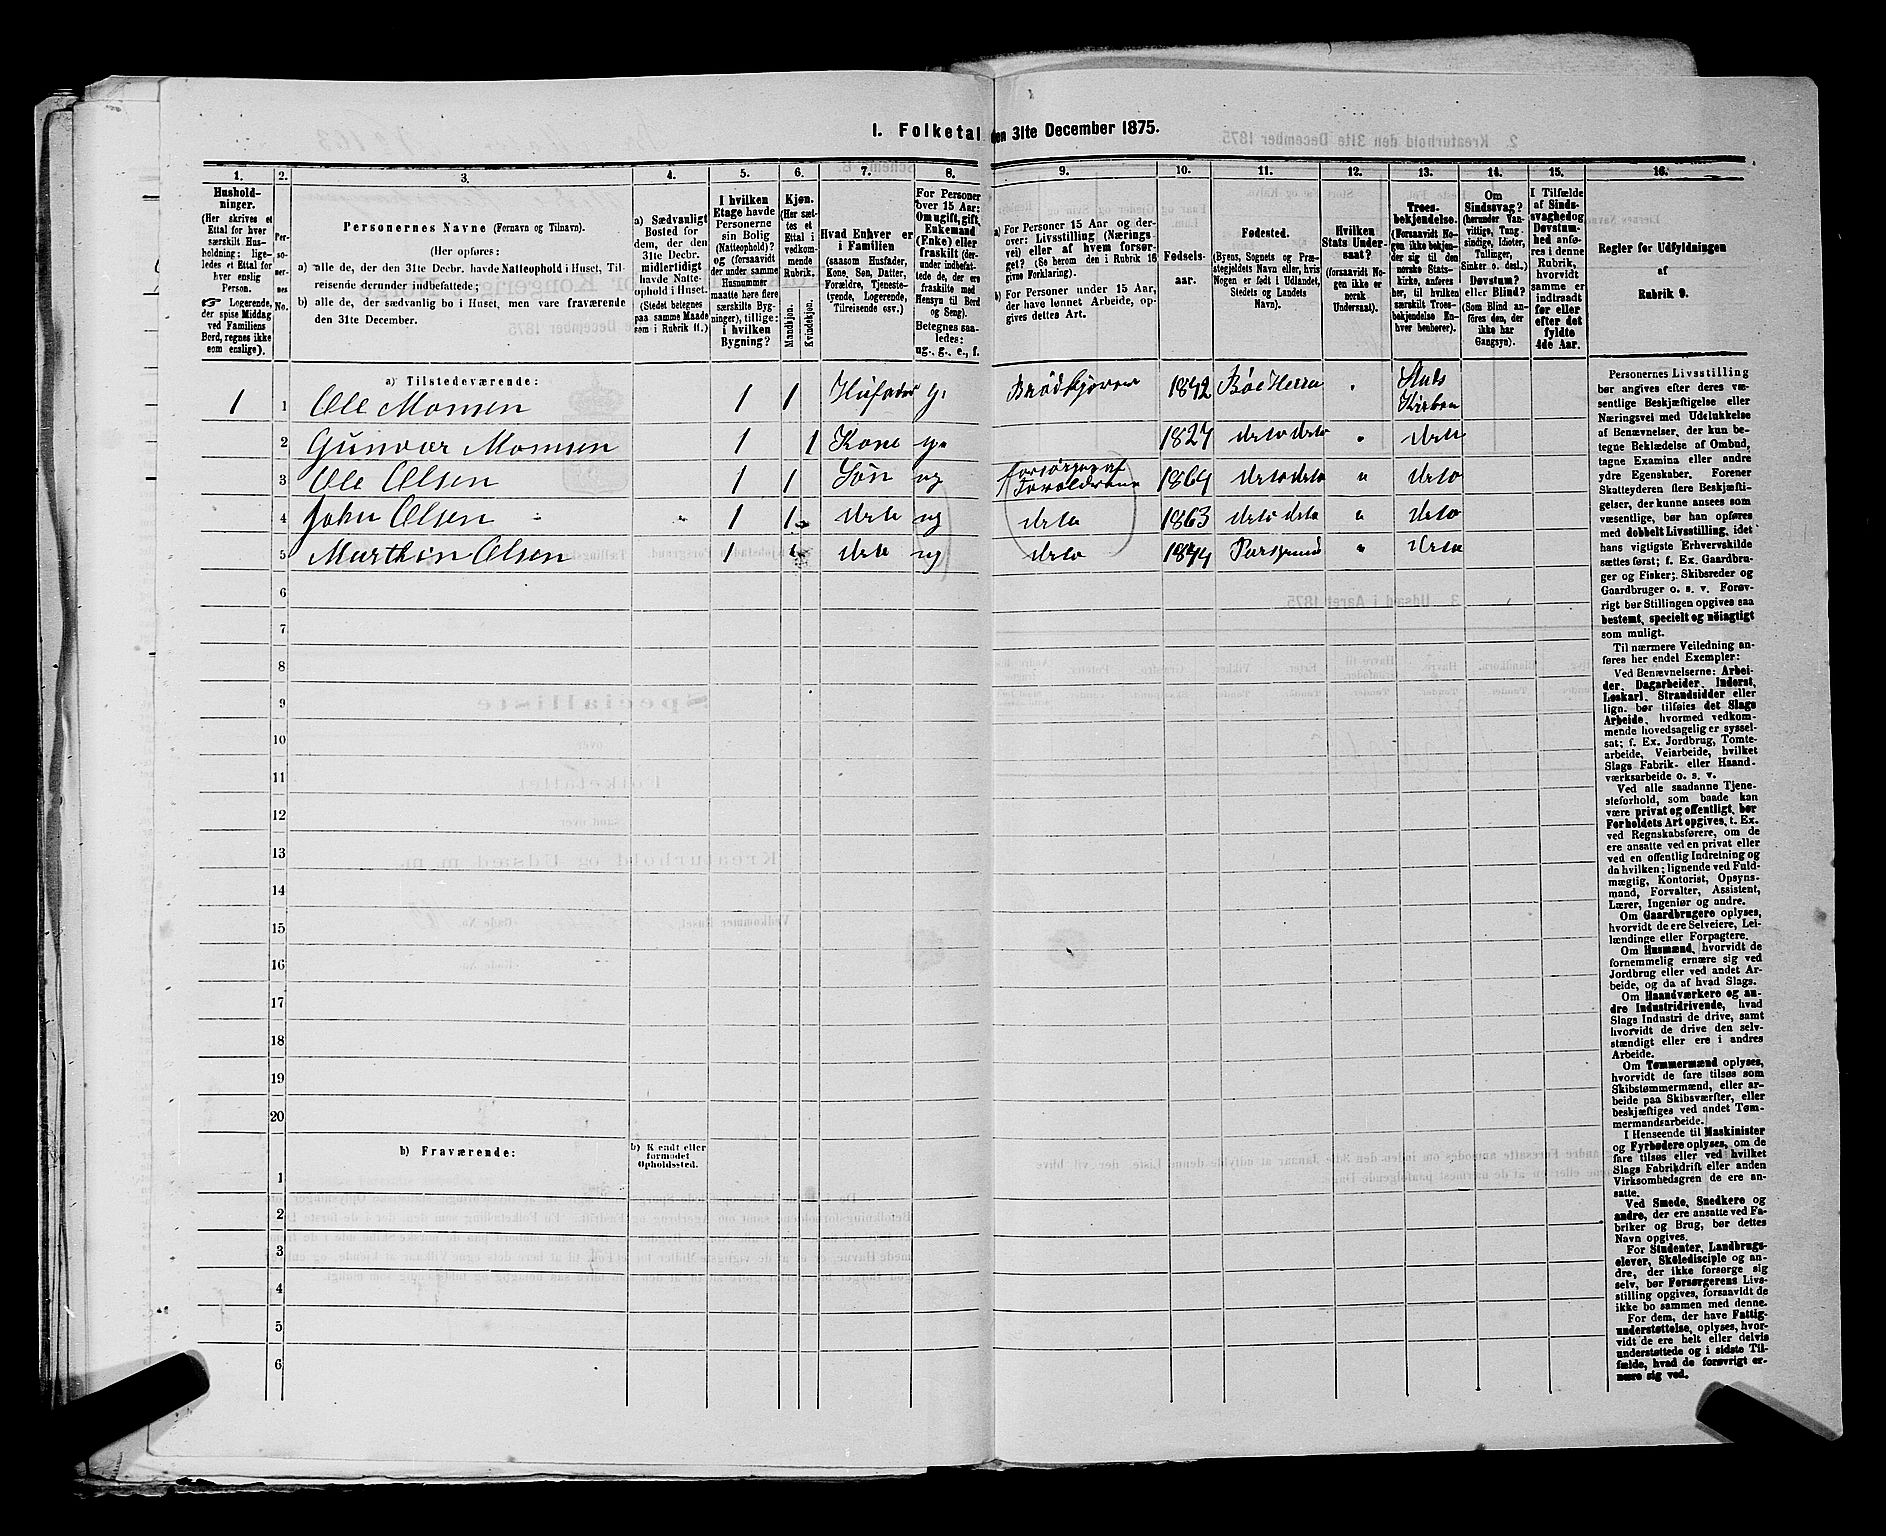 I. Folketal den 31te December 1875.
1. 2. 3. 4. 5. 6. 7. 8. 9. 10. 11. 12. 13. 14. 15. 16.
Hushold-
ninger.
(Her skrives et
Ettal for hver
særskilt Hus-
holdning; lige-
ledes et Ettal for
hver enslig
Person.
☞ Logerende,
der spise Middag
ved Familiens
Bord, regnes ikke
som enslige).
Per-
so-
ner-
nes
No.
Personernes Navne (Fornavn og Tilnavn).
(Her opføres:
a) alle de, der den 31te Decbr. havde Natteophold i Huset, Til-
reisende derunder indbefattede;
b) alle de, der sædvanlig bo i Huset, men vare fraværende
den 31te December.
a) Sædvanligt
Bosted for
dem, der den
31te Decbr.
midlertidigt
havde Natte-
ophold i Huset.
(Stedet betegnes
paa samme Maade
som i Rubrik 11.)
I hvilken
Etage havde
Personerne
sin Bolig
(Natteophold)?
og (forsaavidt
der under samme
Husnummer
maatte høre flere
særskilte Byg-
ninger), tillige:
i hvilken
Bygning?
Kjøn.
(Her sæt-
tes et
Ettal i
vedkom-
mende
Rubrik.
Mandkjøn.
Kvindekjøn.
Hvad Enhver er
i Familien
(saasom Husfader,
Kone, Søn, Datter,
Forældre, Tjeneste-
tyende, Logerende,
Tilreisende osv.)
For Personer
over 15 Aar:
Om ugift, gift,
Enkemand
(Enke) eller
fraskilt (der-
under indbefat-
tede de, der ere
fraskilte med
Hensyn til Bord
og Seng).
Betegnes saa-
ledes:
ug., g., e., f.
a) For Personer 15 Aar og der-
over: Livsstilling (Nærings-
vei) eller af hvem forsør-
get? (Se herom den i Rubrik 16
givne Forklaring).
b) For Personer under 15 Aar,
der have lønnet Arbeide, op-
gives dettes Art.
Fødsels-
aar.
Fødested.
(Byens, Sognets og Præ-
stegjeldets Navn eller, hvis
Nogen er født i Udlandet,
Stedets og Landets
Navn).
Hvilken
Stats Under-
saat?
(forsaavidt No-
gen ikke er
norsk
Undersaat).
Troes-
bekjendelse.
(Forsaavidt No-
gen ikke bekjen-
der sig til den
norske Stats-
kirke, anføres
her, til hvilken
særskilt Troes-
bekjendelse En-
hver henhører).
Om
Sindssvag?
(herunder Van-
vittige, Tung-
sindige, Idioter,
Tullinger,
Sinker o. desl.)
Døvstum?
eller Blind?
(Som Blind an-
føres den, der
ikke har
Gangsyn).
I Tilfælde
af Sinds-
svaghed og
Døvstum-
hed anfø-
res i denne
Rubrik,
hvorvidt
samme er
indtraadt
før eller
efter det
fyldte
4de Aar.
Regler for Udfyldningen
af
Rubrik 9.
a) Tilstedeværende:
1 1 Ole Monsen 1 1 Husfader g. Brødkjører 1842 Bøe Herra " Stats Kirken
2 Gunvor Monsen 1 1 Kone g. 1827 deto deto " deto
3 Ole Olsen 1 1 Søn ug Forsørges af Forældrene 1864 deto deto " deto
4 John Olsen " 1 1 deto ug deto 1863 deto deto " deto
5 Marthin Olsen 1 1 deto ug deto 1874 Porsgrund " deto
6
7
8
9
10
11
12
13
14
15
16
17
18
19
20
b) Fraværende:
b) Kjendt eller
formodet
Opholdssted.
1
2
3
4
5
6
Personernes Livsstilling
bør angives efter deres væ-
sentlige Beskjæftigelse eller
Næringsvei med Udelukkelse
af Benævnelser, der kun be-
tegne Beklædelse af Ombud,
tagne Examina eller andre
ydre Egenskaber. Forener
Skatteyderen flere Beskjæfti-
gelser, der kunne ansees som
væsentlige, bør han opføres
med dobbelt Livsstilling, idet
hans vigtigste Erhvervskilde
sættes først; f. Ex. Gaardbru-
ger og Fisker; Skibsreder og
Gaardbruger o. s. v. Forøv-
rigt bør Stillingen opgives saa
bestemt, specielt og nöiagtigt
som muligt.
Til nærmere Veiledning an-
føres her endel Exempler:
Ved Benævnelserne: Arbei-
der, Dagarbeider, Inderst,
Løskarl, Strandsidder eller
lign. bør tilføies det Slags
Arbeide, hvormed vedkom-
mende hovedsagelig er syssel-
sat; f. Ex. Jordbrug, Tomte-
arbeide, Veiarbeide, hvilket
Slags Fabrik- eller Haand-
værksarbeide o. s. v.
Ved alle saadanne Tjene-
steforhold, som baade kan
være privat og offentligt, bør
Forholdets Art opgives, t. Ex.
ved Regnskabsførere, om de
ere ansatte ved en privat eller
ved en offentlig Indretning og
da hvilken; lignende ved Fuld-
mægtig, Kontorist, Opsyns-
mand, Forvalter, Assistent,
Lærer, Ingeniør og andre.
Om Gaardbrugere oplyses,
hvorvidt de ere Selveiere, Lei-
lændinge eller Forpagtere.
Om Husmænd, hvorvidt de
fornemmelig ernære sig ved
Jordbrug eller ved andet Ar-
beide, og da af hvad Slags.
Om Haandværkere og an-
dre Industridrivende, hvad
Slags Industri de drive, samt
hvorvidt de drive den selv-
stændigt eller ere i andres
Arbeide.
Om Tømmermænd oplyses,
hvorvidt de fare tilsøs som
Skibstømmermænd, eller ar-
beide paa Skibsværfter, eller
beskjæftiges ved andet Tøm-
mermandsarbeide.
I Henseende til Maskinister
og Fyrbødere oplyses, om de
fare tilsøs eller ved hvilket
Slags Fabrikdrift eller anden
Virksomhedsgren de ere an-
satte.
Ved Smede, Snedkere og
andre, der ere ansatte ved Fa-
briker og Brug, bør dettes
Navn opgives.
For Studenter, Landbrugs-
elever, Skoledisciple og an-
dre, der ikke forsørge sig
selv, bør Forsørgerens Livs-
stilling opgives, forsaavidt de
ikke bo sammen med denne.
For dem, der have Fattig-
understøttelse, oplyses, hvor-
vidt de ere helt eller delvis
understøttede og i sidste Til-
fælde, hvad de forøvrigt er-
nære sig ved.